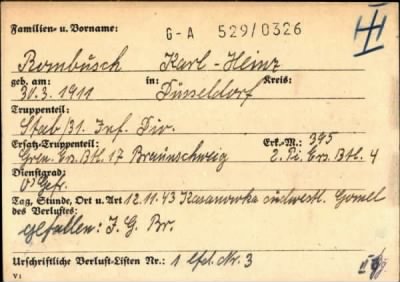 Familien- u. Vorname: G-A 529/0326
Rombusch Karl-Heinz
geb. am: in: Kreis:
30.3.1911 Düsseldorf
Truppenteil:
Stab/31. Inf. Div.
Ersatz-Truppenteil: Erk.-M.: 395
Gren. Ers. Btl. 17 Braunschweig 2. Pi. Ers. Btl. 4
Dienstgrad:
O'Gefr.
Tag, Stunde, Ort u. Art 12.11.43 südwestl. Gomel
des Verlustes:
gefallen: I. G. Br.
Urschriftliche Verlust-Listen Nr.: 1 lfd. Nr. 3
V1